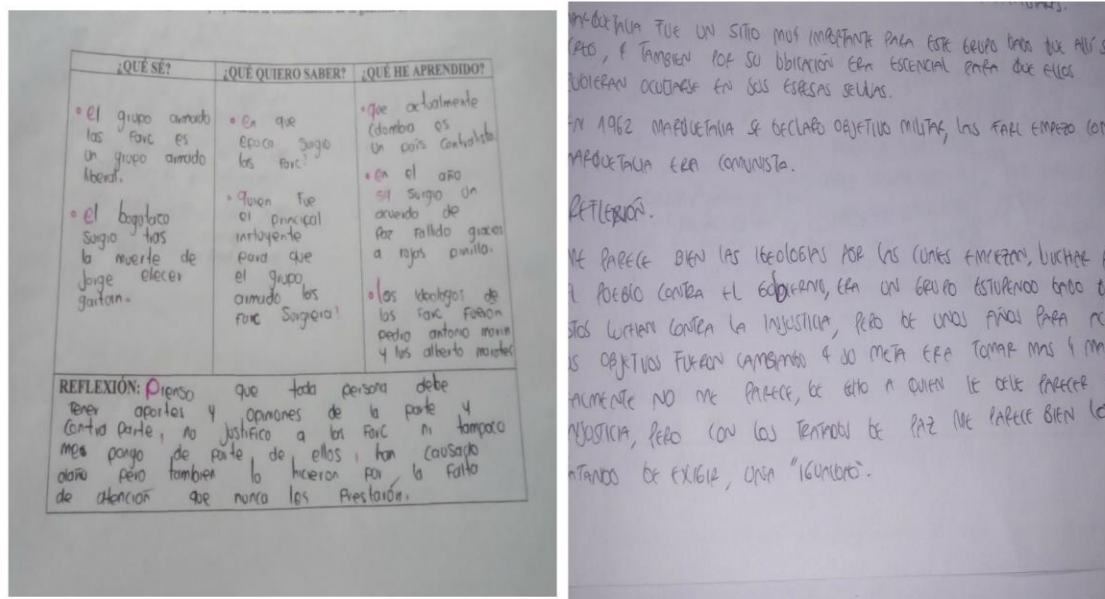 ¿QUÉ SÉ?
• el grupo armado
las Farc es
un grupo armado
liberal.
• el bogotaco
Surgio tras
la muerte de
Jorge elecer
gaitan.
¿QUÉ QUIERO SABER?
• En que
epoca Surgio
las Farc?
• Quien fue
el principal
influyente
para que
el grupo
armado las
Farc Surgiera?
¿QUÉ HE APRENDIDO?
• que actualmente
Colombia es
un país
• en el año
54 Surgio un
acuerdo de
Paz Fallido gracias
a rojas pinilla.
• los ideologos de
las Farc Fueron
pedro antonio marin
y luis alberto morantes
REFLEXIÓN: Pienso que toda persona debe
tener aportes y opiniones de la parte y
contra parte, no justifico a las Farc ni tampoco
me pongo de parte de ellos, han causado
daño pero tambien lo hicieron por la Falta
de atención que nunca les Prestarón.
FUE UN SITIO MUY IMPORTANTE PARA ESTE GRUPO DADO QUE ALLÍ
Y TAMBIEN POR SU UBICACIÓN ERA ESCENCIAL PARA QUE ELLOS
PUDIERAN OCULTARSE EN SUS ESPESAS SELVAS.
EN 1962 MARQUETALIA SE DECLARO OBJETIVO MILITAR, LAS FARC EMPEZO
MARQUETALIA ERA COMUNISTA.
REFLEXIÓN.
ME PARECE BIEN LAS IDEOLOGIAS POR LAS CUALES EMPEZARON, LUCHAR
EL PUEBLO CONTRA EL GOBIERNO, ERA UN GRUPO ESTUPENDO DADO
ESTOS LUCHAN CONTRA LA INJUSTICIA, PERO DE UNOS AÑOS PARA
OBJETIVOS FUERON CAMBIANDO Y SU META ERA TOMAR MAS Y
NO ME PARECE, DE ESTO A QUIEN LE DEBE PARECER
INJUSTICIA, PERO CON LOS TRATADOS DE PAZ ME PARECE BIEN
DE EXIGIR, UNA "IGUALDAD".